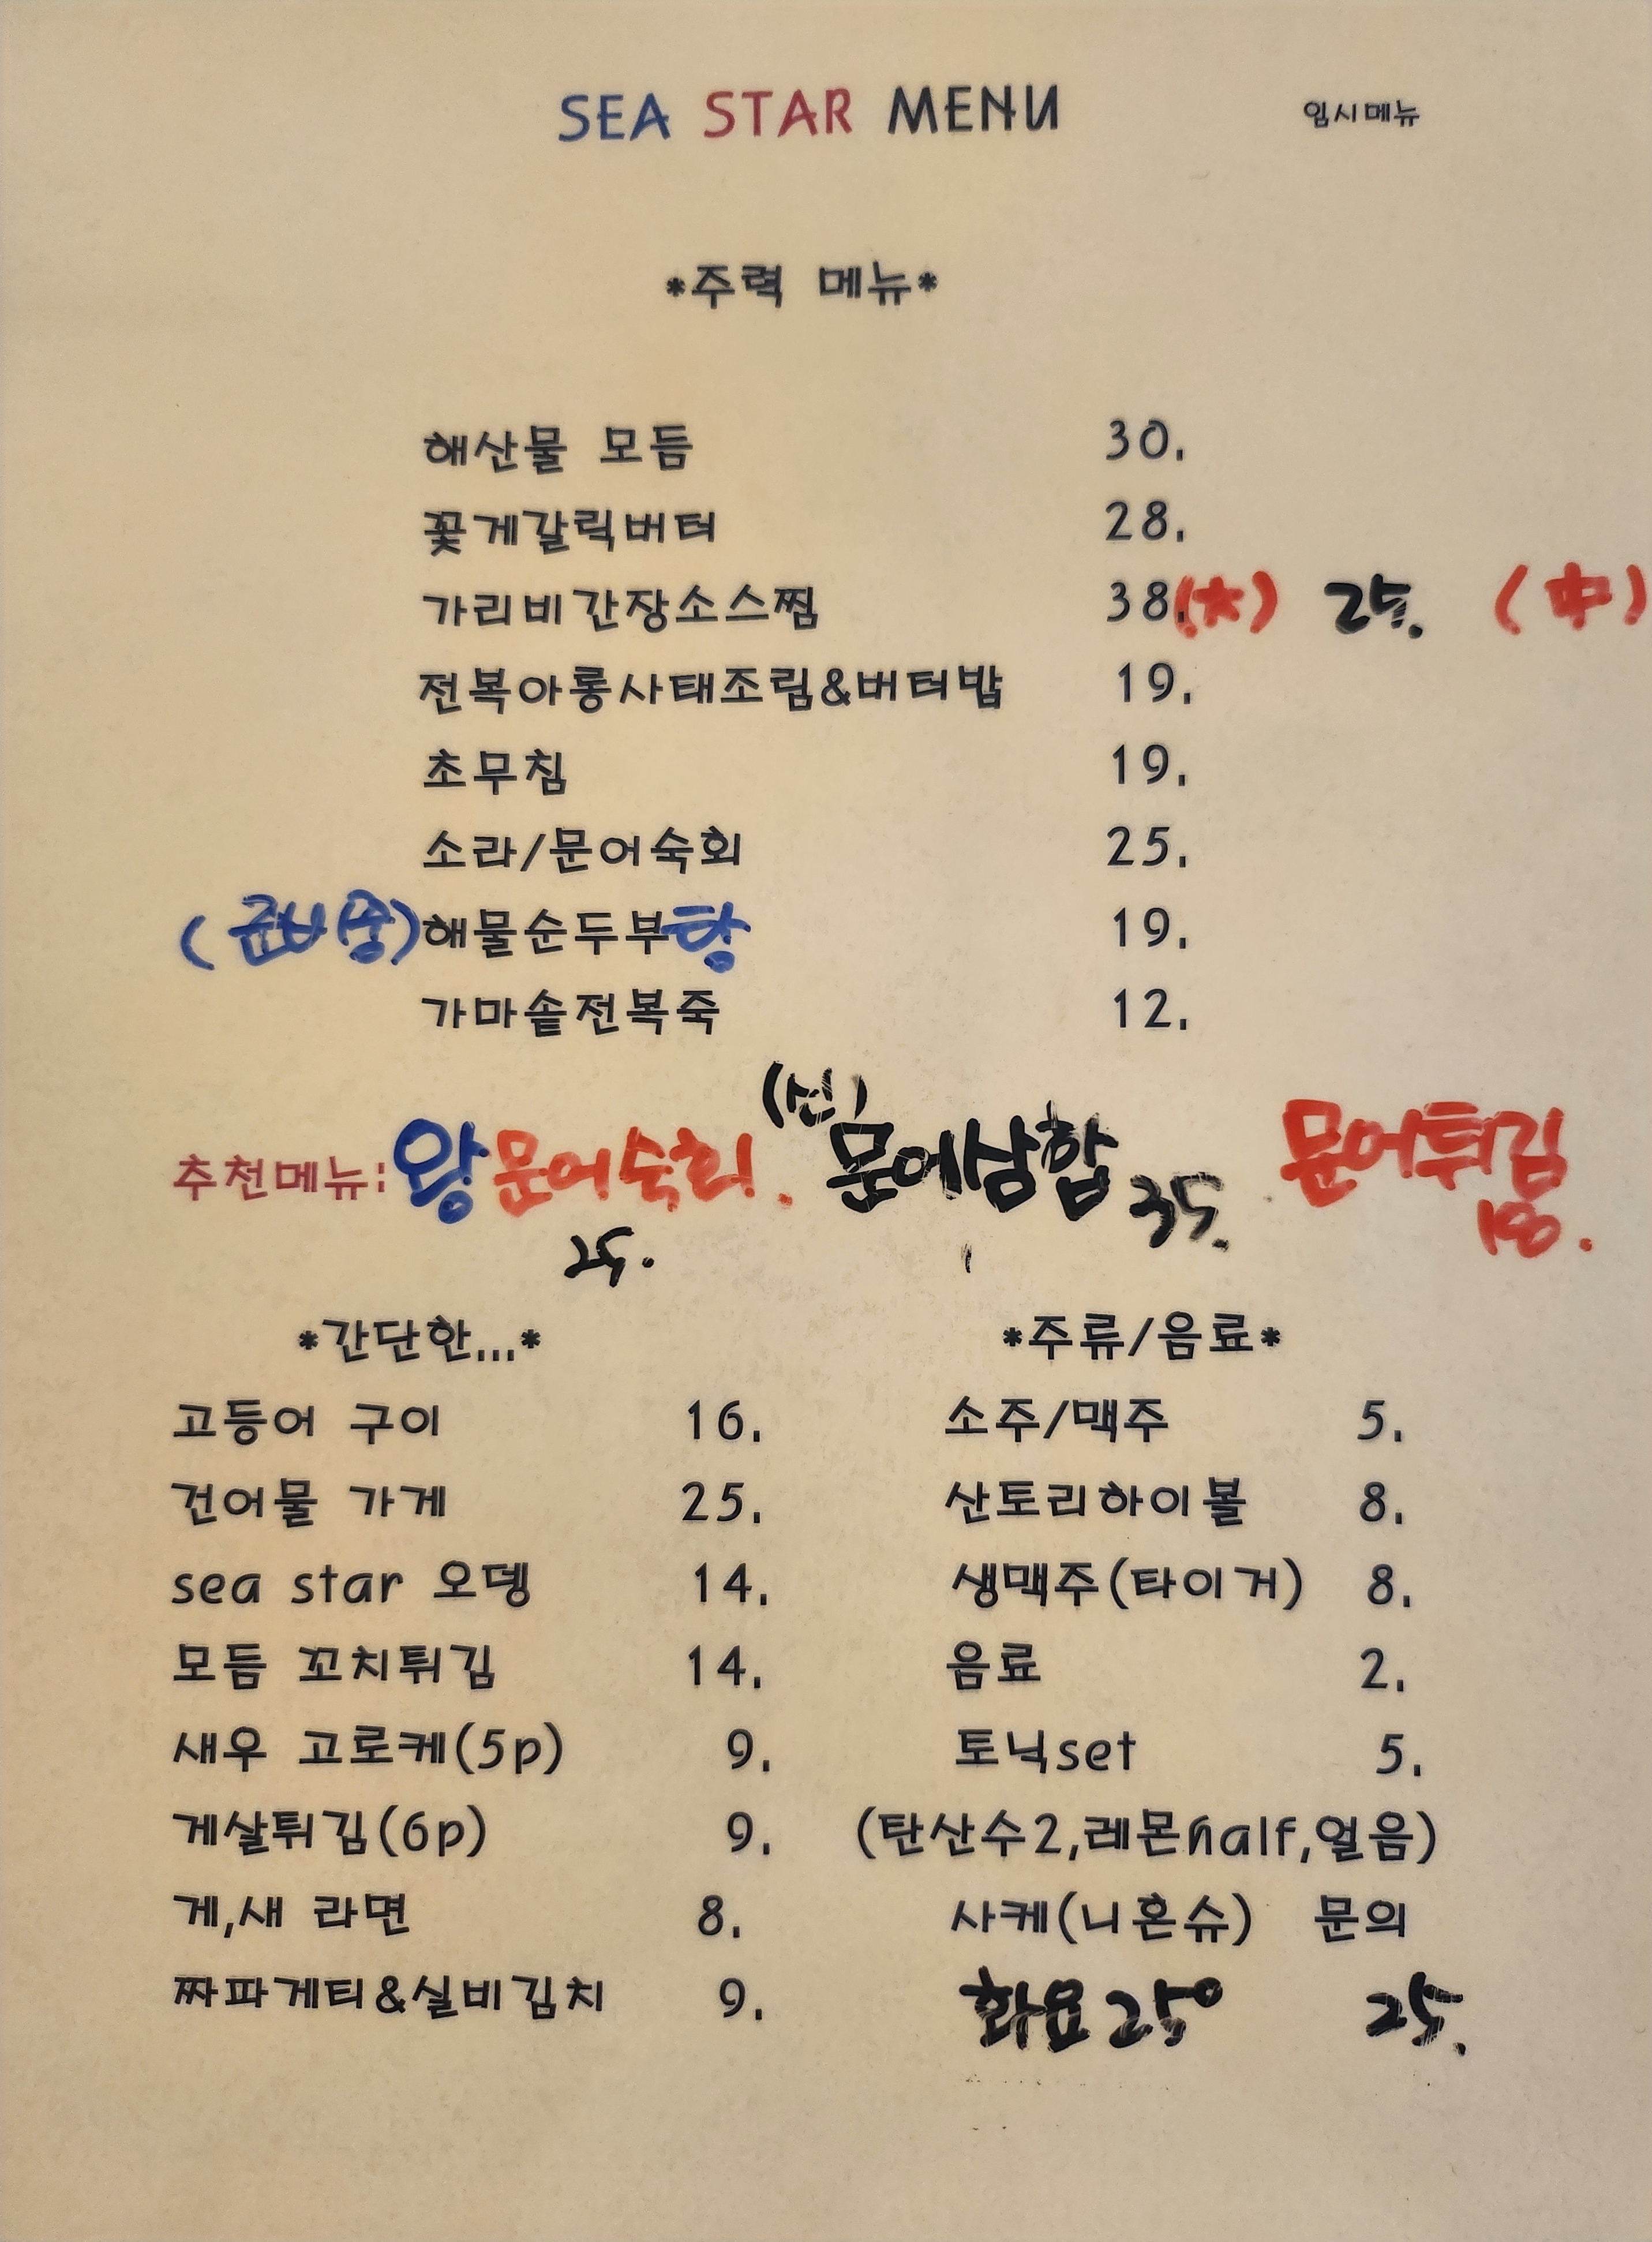 SEA STAR MENU
임시메뉴
*주력 메뉴*
해산물 모듬 30.
꽃게갈릭버터 28.
가리비간장소스찜 38.(大) 25. (中)
전복아롱사태조림&버터밥 19.
초무침 19.
소라/문어숙회 25.
(준비중)해물순두부탕 19.
가마솥전복죽 12.
추천메뉴: 왕문어숙회. 25. (신)문어삼합 35. 문어튀김 18.
*간단한...*
고등어 구이 16.
건어물 가게 25.
sea star 오뎅 14.
모듬 꼬치튀김 14.
새우 고로케(5p) 9.
게살튀김(6p) 9.
게,새 라면 8.
짜파게티&실비김치 9.
*주류/음료*
소주/맥주 5.
산토리하이볼 8.
생맥주(타이거) 8.
음료 2.
토닉set 5.
(탄산수2,레몬half,얼음)
사케(니혼슈) 문의
화요25° 25.